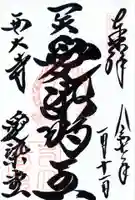 奉拝
一月十一日
愛染明王
西大寺
愛染堂